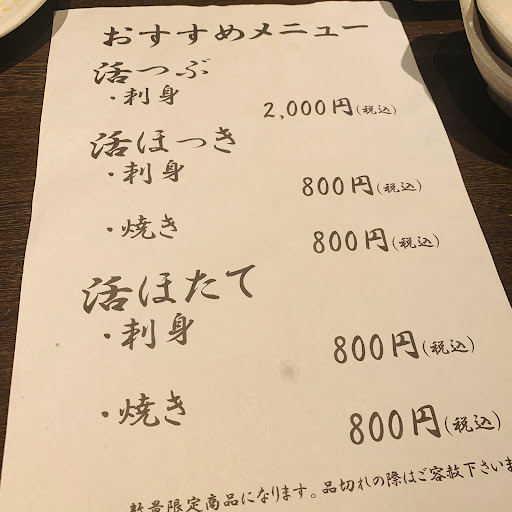 おすすめメニュー
活つぶ
・刺身
2,000円(税込)
活ほっき
・刺身
800円(税込)
・焼き
800円(税込)
活ほたて
・刺身
800円(税込)
・焼き
800円(税込)
数量限定商品になります。品切れの際はご容赦下さいま